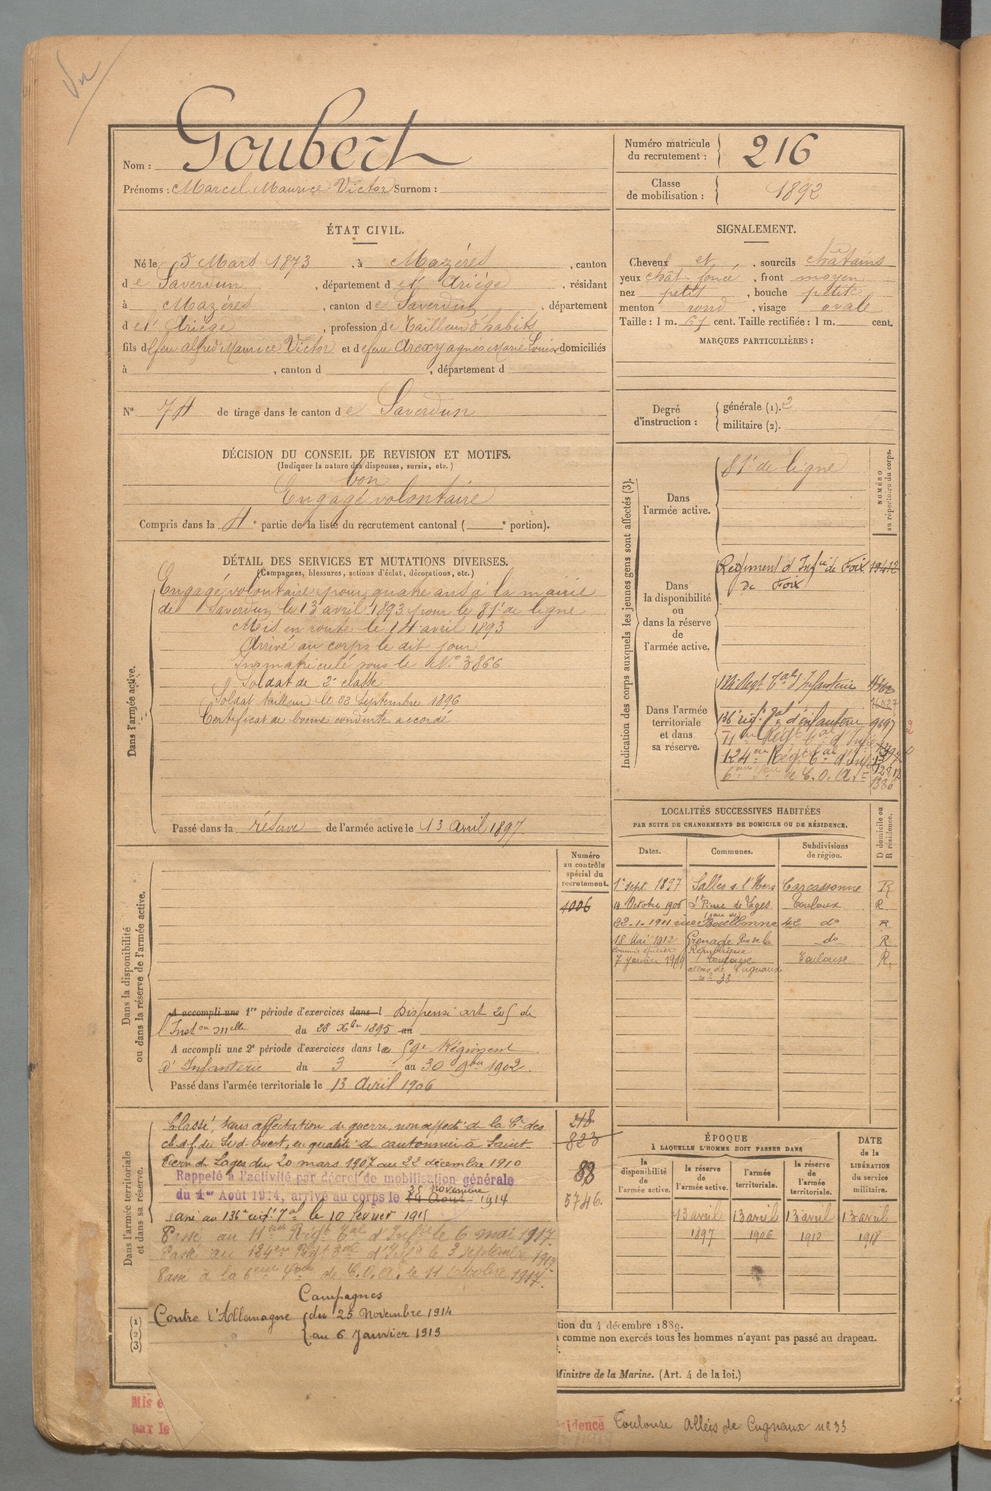 Vu
Nom : Goubert
Prénoms : Marcel Maurice Victor Surnom :
Numéro matricule du recrutement : 216
Classe de mobilisation : 1892
ÉTAT CIVIL.
Né le 5 Mars 1873, à Mazéres, canton
de Saverdun, département de l'Ariége, résidant
à Mazéres, canton de Saverdun, département
de l'Ariége, profession de Tailleur d'habits
fils de feu Alfred Maurice Victor et de feue Arexy Agnès Marie Louise domiciliés
à , canton d , département d
N° 74 de tirage dans le canton de Saverdun
SIGNALEMENT.
Cheveux et, sourcils châtains
yeux chât. foncé, front moyen
nez petit, bouche petite
menton rond, visage ovale
Taille : 1 m. 67 cent. Taille rectifiée : 1 m. cent.
MARQUES PARTICULIÈRES :
Degré d'instruction : générale (1). 2
militaire (2).
DÉCISION DU CONSEIL DE REVISION ET MOTIFS.
(Indiquer la nature des dispenses, sursis, etc.)
bon
Engagé volontaire
Compris dans la 4e partie de la liste du recrutement cantonal ( e portion).
DÉTAIL DES SERVICES ET MUTATIONS DIVERSES.
(Campagnes, blessures, actions d'éclat, décorations, etc.)
Dans l'armée active.
Engagé volontaire pour quatre ans à la mairie
de Saverdun le 13 avril 1893 pour le 81e de ligne
Mis en route le 14 avril 1893
Arrivé au corps le dit jour
Immatriculé sous le N° 3866
Soldat de 2e classe
Soldat tailleur le 23 Septembre 1896
Certificat de bonne conduite accordé
Passé dans la réserve de l'armée active le 13 Avril 1897.
Indication des corps auxquels les jeunes gens sont affectés (3).
NUMÉRO au répertoire du corps.
Dans l'armée active.
81e de ligne
Dans la disponibilité ou dans la réserve de l'armée active.
Régiment d'Infie de Foix
de Foix
Dans l'armée territoriale et dans sa réserve.
136e régt Tal d'infanterie 9697
124me Régt Tal d'Inf
LOCALITÉS SUCCESSIVES HABITÉES
PAR SUITE DE CHANGEMENTS DE DOMICILE OU DE RÉSIDENCE.
Dates. Communes. Subdivisions de région. D domicile ou R résidence.
1er sept. 1897 Salles s. l'Hers Carcassonne R
Toulouse R
22.1.1911 do R
18 Mai 1912 Grenade do R
7 janvier 1919 Toulouse Toulouse R
allées de Cugnaux
n° 33
Dans la disponibilité ou dans la réserve de l'armée active.
Numéro au contrôle spécial du recrutement.
1006
A accompli une 1re période d'exercices dans l Dispensé art 205 de
l'Inston mlle du 28 Xbre 1895 au
A accompli une 2e période d'exercices dans le 59e Régiment
d'Infanterie du 3 au 30 9bre 1902.
Passé dans l'armée territoriale le 13 Avril 1906
Dans l'armée territoriale et dans sa réserve.
Classé, sans affectation de guerre, non affecté de la Cie des
ch. d. f. du Sud-Ouest, en qualité de cantonnier à Saint
Pierre de Lages du 20 mars 1907 au 22 décembre 1910
Rappelé à l'activité par décret de mobilisation générale
du 1er Août 1914, arrivé au corps le 25 Novembre 1914
Passé au 136e régt Tal le 10 février 1915
Passé au 11eme Régt Tal d'Infie le 6 mai 1917.
Passé au 124eme Régt Tal d'Infie le 3 septembre 1917.
Passé à la 6eme Son de C.O.A. le 11 octobre 1917.
Campagnes
Contre l'Allemagne du 25 Novembre 1914
au 6 Janvier 1919
218
823
88
5746.
ÉPOQUE
À LAQUELLE L'HOMME DOIT PASSER DANS
la disponibilité de l'armée active. la réserve de l'armée active. l'armée territoriale. la réserve de l'armée territoriale.
DATE de la LIBÉRATION du service militaire.
13 avril 1897 13 avril 1906 13 avril 1912 13 avril 1918
(1)
(2)
(3)
tion du 4 décembre 1889.
comme non exercés tous les hommes n'ayant pas passé au drapeau.
Ministre de la Marine. (Art. 4 de la loi.)
Mis e
par le
sidence Toulouse Allées de Cugnaux n° 33